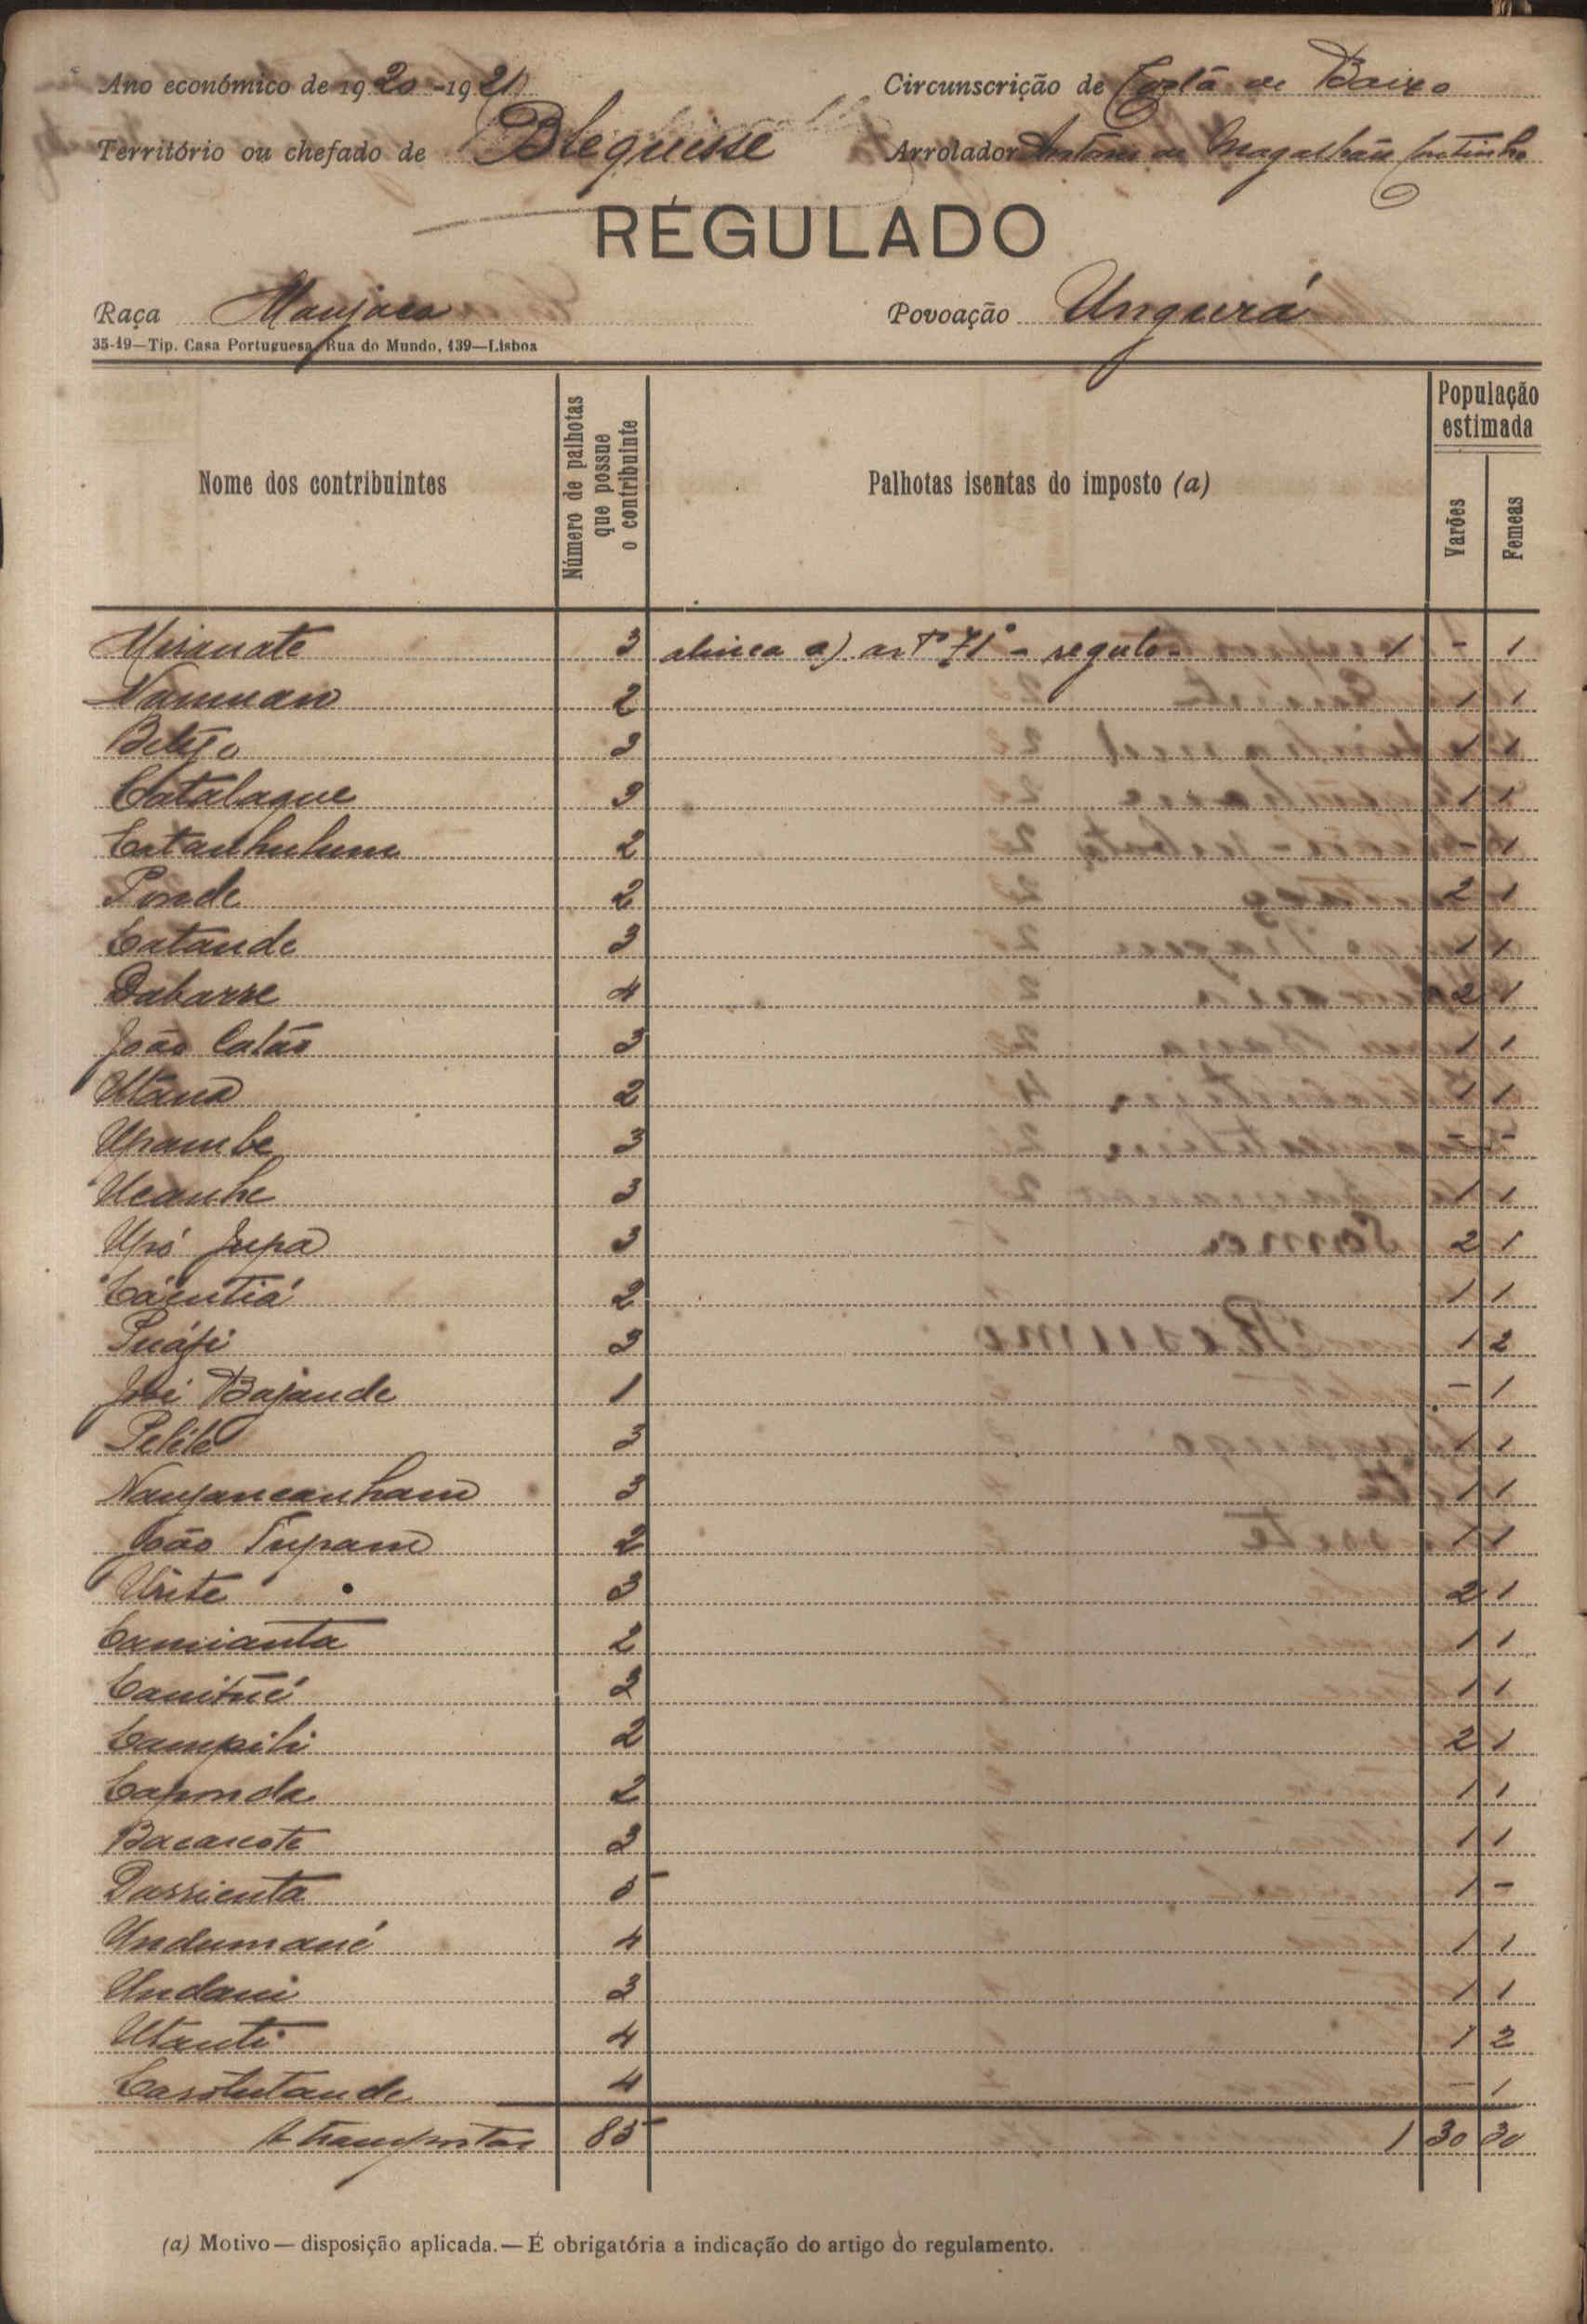 Ano económico de 1920-1921 Circunscrição de Costa de Baixo
Território ou chefado de Blequisse Arrolador António de Magalhães Coutinho
REGULADO
Raça Manjaca Povoação Unguerá
35-19—Tip. Casa Portuguesa, Rua do Mundo, 139—Lisboa
Nome dos contribuintes Número de palhotas que possue o contribuinte Palhotas isentas do imposto (a) População estimada Varões Femeas
3 alinea a) artº 71º - regulo - 1 - 1
Namman 2 1 1
3 1 1
Catalaque 3 1 1
Catanhulume 2 - 1
Ponde 2 2 1
Catande 3 1 1
Dabarre 4 2 1
João Catão 3 1 1
Utana 2 1 1
Upambe 3 - -
Ucanhe 3 1 1
Upó Jupa 3 2 1
2 1 1
3 1 2
José Bajande 1 - 1
Pelile 3 1 1
Naujancanham 3 1 1
João Tupam 2 1 1
Urite 3 2 1
Camianta 2 1 1
Canitué 3 1 1
Campili 2 2 1
Caponda 2 1 1
Bacarcote 3 1 1
Darrienta 5 1 -
Undumané 4 1 1
Undani 3 1 1
Utanti 4 1 2
4 - 1
A transportar 85 1 30 30
(a) Motivo — disposição aplicada. — É obrigatória a indicação do artigo do regulamento.